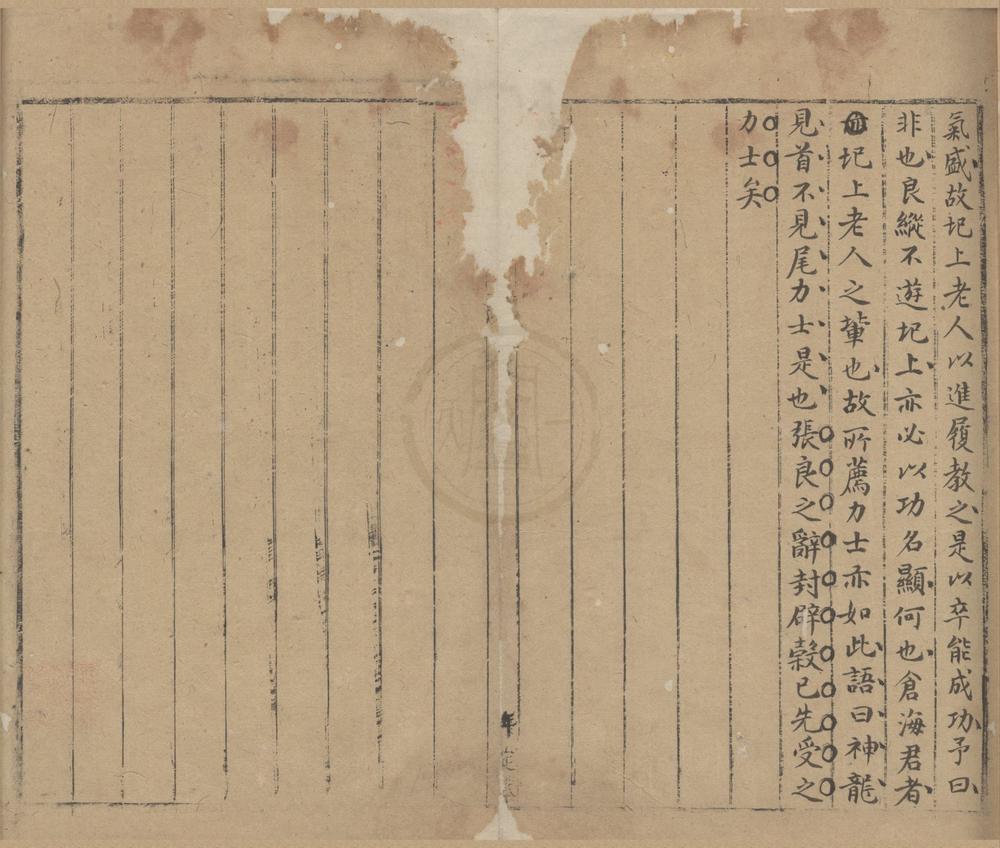 氣盛故圯上老人以進履教之是以卒能成功予曰
非也良縱不遊圯上亦必以功名顯何也倉海君者
圯上老人之輩也故所薦力士亦如此語曰神龍
見首不見尾力士是也張良之辭封辟穀已先受之
力士矣